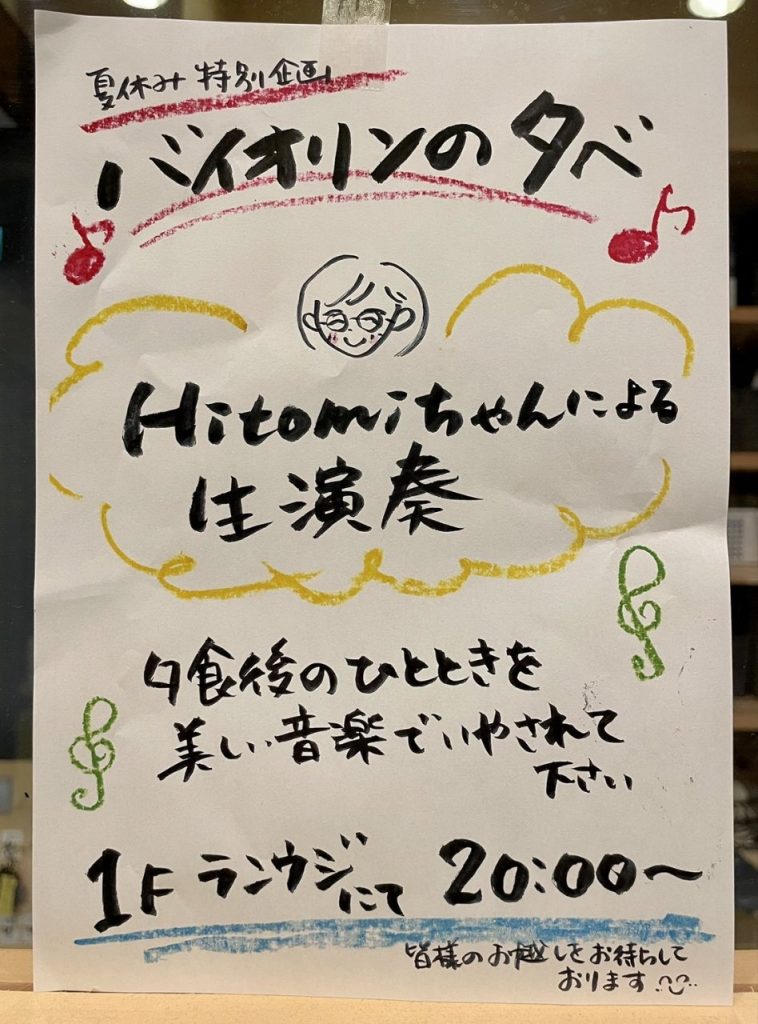 夏休み 特別企画
バイオリンの夕べ
Hitomiちゃんによる
生演奏
夕食後のひとときを
美しい音楽でいやされて
下さい
1F ランウジにて 20:00〜
皆様のお越しをお待ちして
おります